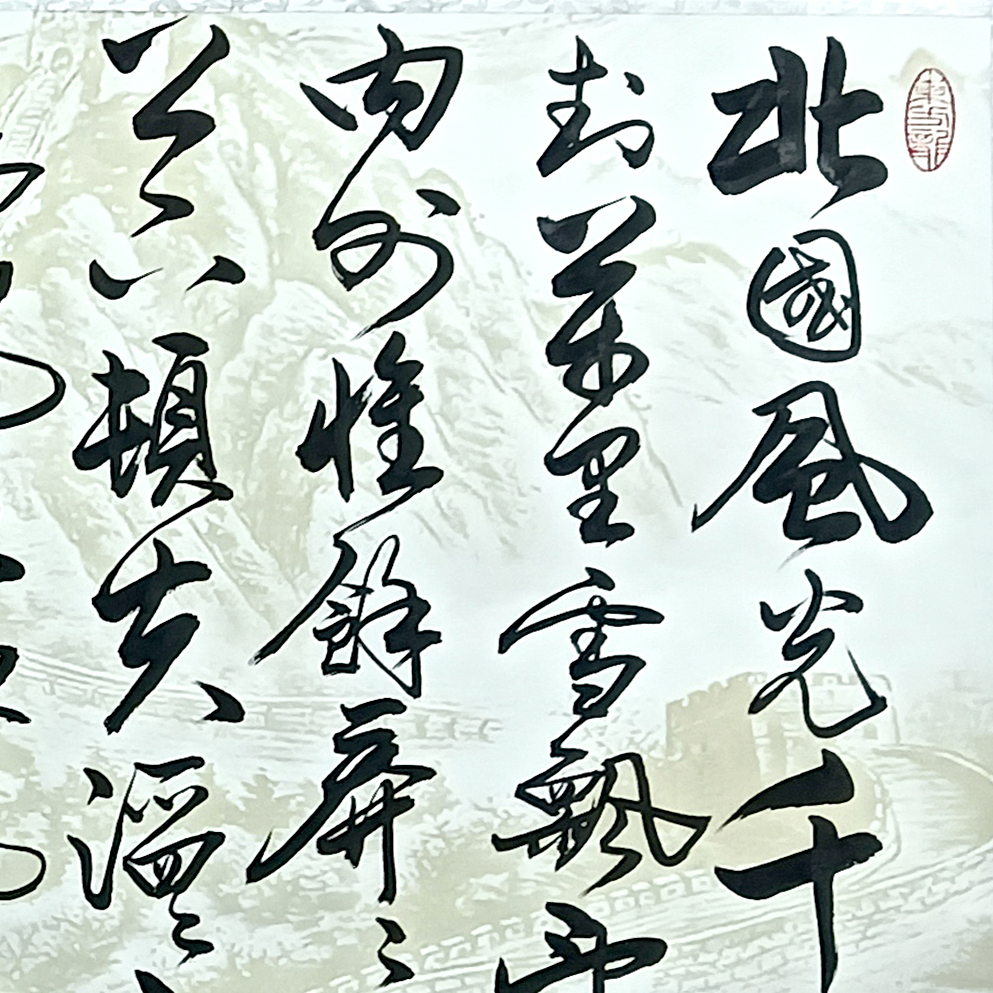 北國風光千
封萬里雪飄
内外惟餘莽〻
上下頓失滔〻